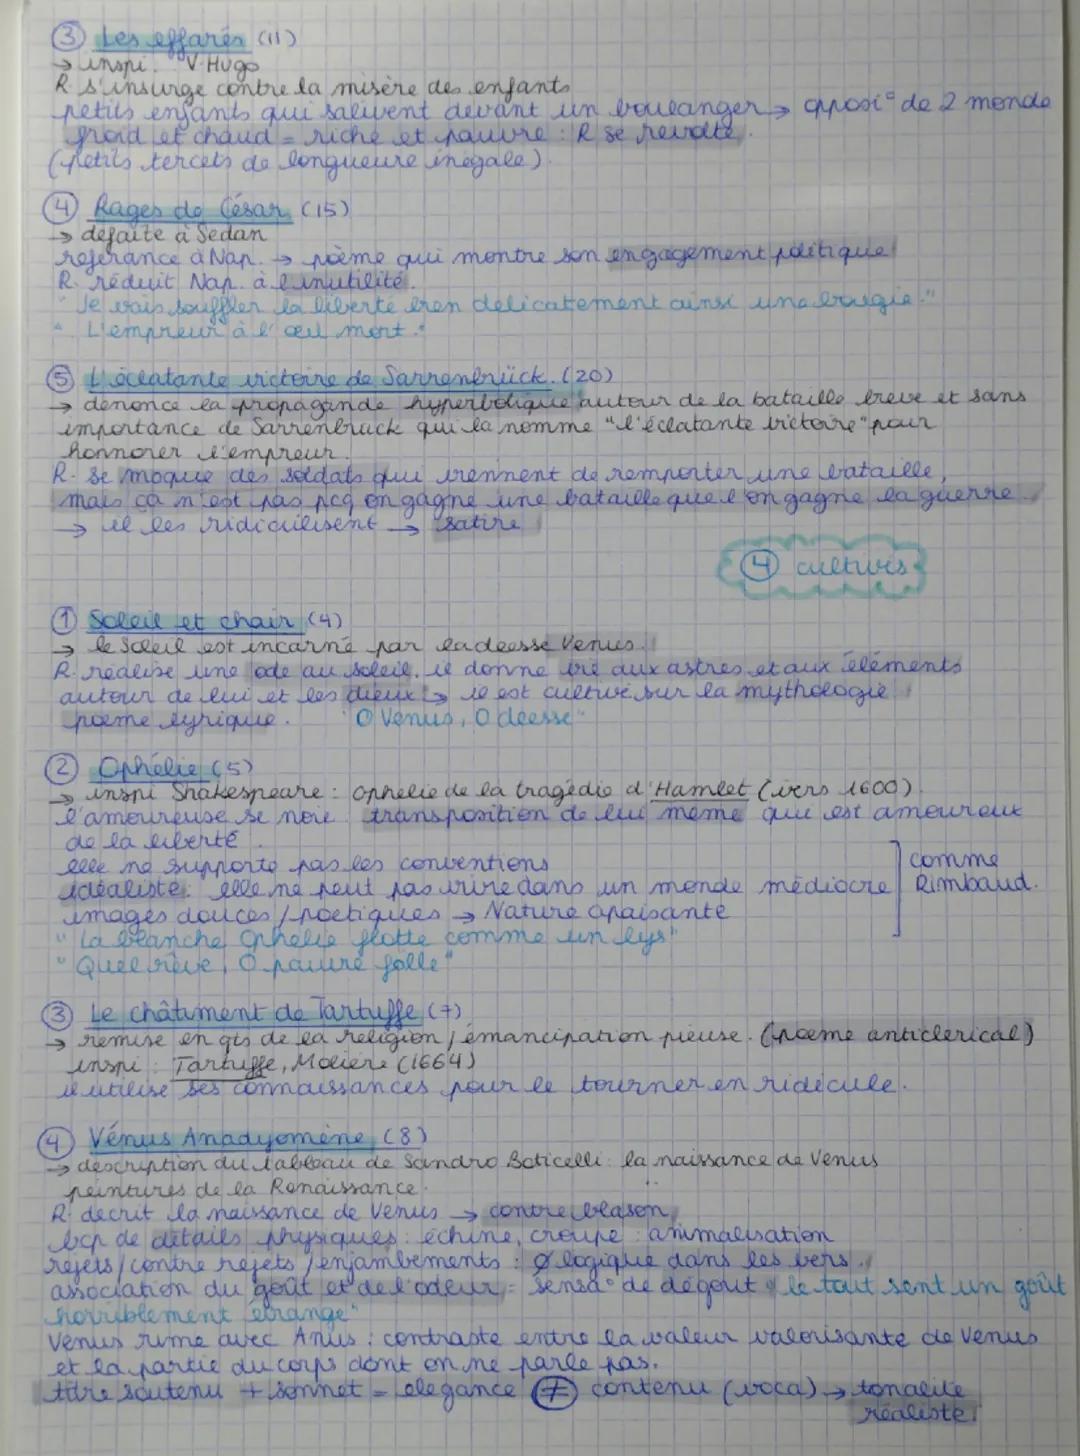 ③ Les effarés (11)
→ inspi. V. Hugo
R s'insurge contre la misère des enfants
petits enfants qui salivent devant un boulanger → opposi° de 2 monde
froid et chaud = riche et pauvre : R se revolte.
(petits tercets de longueure inégale).
④ Rages de César (15)
→ défaite à Sedan
referance à Nap. → poème qui montre son engagement politique
R. réduit Nap. à l'inutilité.
"Je vais souffler la liberté bien délicatement ainsi une bougie."
"L'empreur à l'œil mort."
⑤ L'éclatante victoire de Sarrenbrück. (20)
→ dénonce la propagande hyperbolique autour de la bataille breve et sans
importance de Sarrenbruck qui la nomme "l'éclatante victoire" pour
honnorer l'empreur.
R. se moque des soldats qui viennent de remporter une bataille,
mais ça n'est pas pcq on gagne une bataille que l'on gagne la guerre.
→ il les ridiculisent → satire
④ cultivés
① Soleil et chair (4)
→ le soleil est incarné par la deesse Venus.
R. réalise une ode au soleil. il donne vie aux astres et aux éléments
autour de lui et les dieux → il est cultivé sur la mythologie
poème lyrique. "O Venus, O déesse"
② Ophélie (5)
→ inspi Shakespeare : Ophélie de la tragédie d'Hamlet (vers 1600).
l'amoureuse se noie transposition de lui même qui est amoureux
de la liberté.
elle ne supporte pas les conventions
idéaliste: elle ne peut pas vivre dans un monde médiocre
images douces / poetiques → Nature apaisante
comme
Rimbaud.
"La blanche Ophélie flotte comme un lys"
"Quel rêve, O pauvre folle"
③ Le châtiment de Tartuffe (7)
→ remise en qts de la religion / émancipation pieuse. (poème anticlerical)
inspi : Tartuffe, Molière (1664)
il utilise ses connaissances pour le tourner en ridicule.
④ Vénus Anadyomène (8)
→ description du tableau de Sandro Boticelli : la naissance de Venus
peintures de la Renaissance.
R. decrit la naissance de Venus → contre blason
bcp de détails physiques : échine, croupe : animalisation
rejets / contre rejets / enjambements : Ø logique dans les vers.
association du goût et de l'odeur = sensa° de dégout "le tout sent un goût
horriblement étrange"
Venus rime avec Anus : contraste entre la valeur valorisante de Venus
et la partie du corps dont on ne parle pas.
titre soutenu + sonnet = elegance ≠ contenu (voca) → tonalité
réaliste.